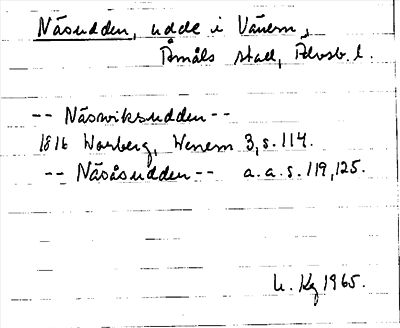 Näsudden, udde i Vänern,
Åmåls stad, Älvsb. l.
-- Näswiksudden --
1816 Warberg, Wenern 3, s. 114.
-- Näsåsudden -- a.a. s. 119, 125.
1965.